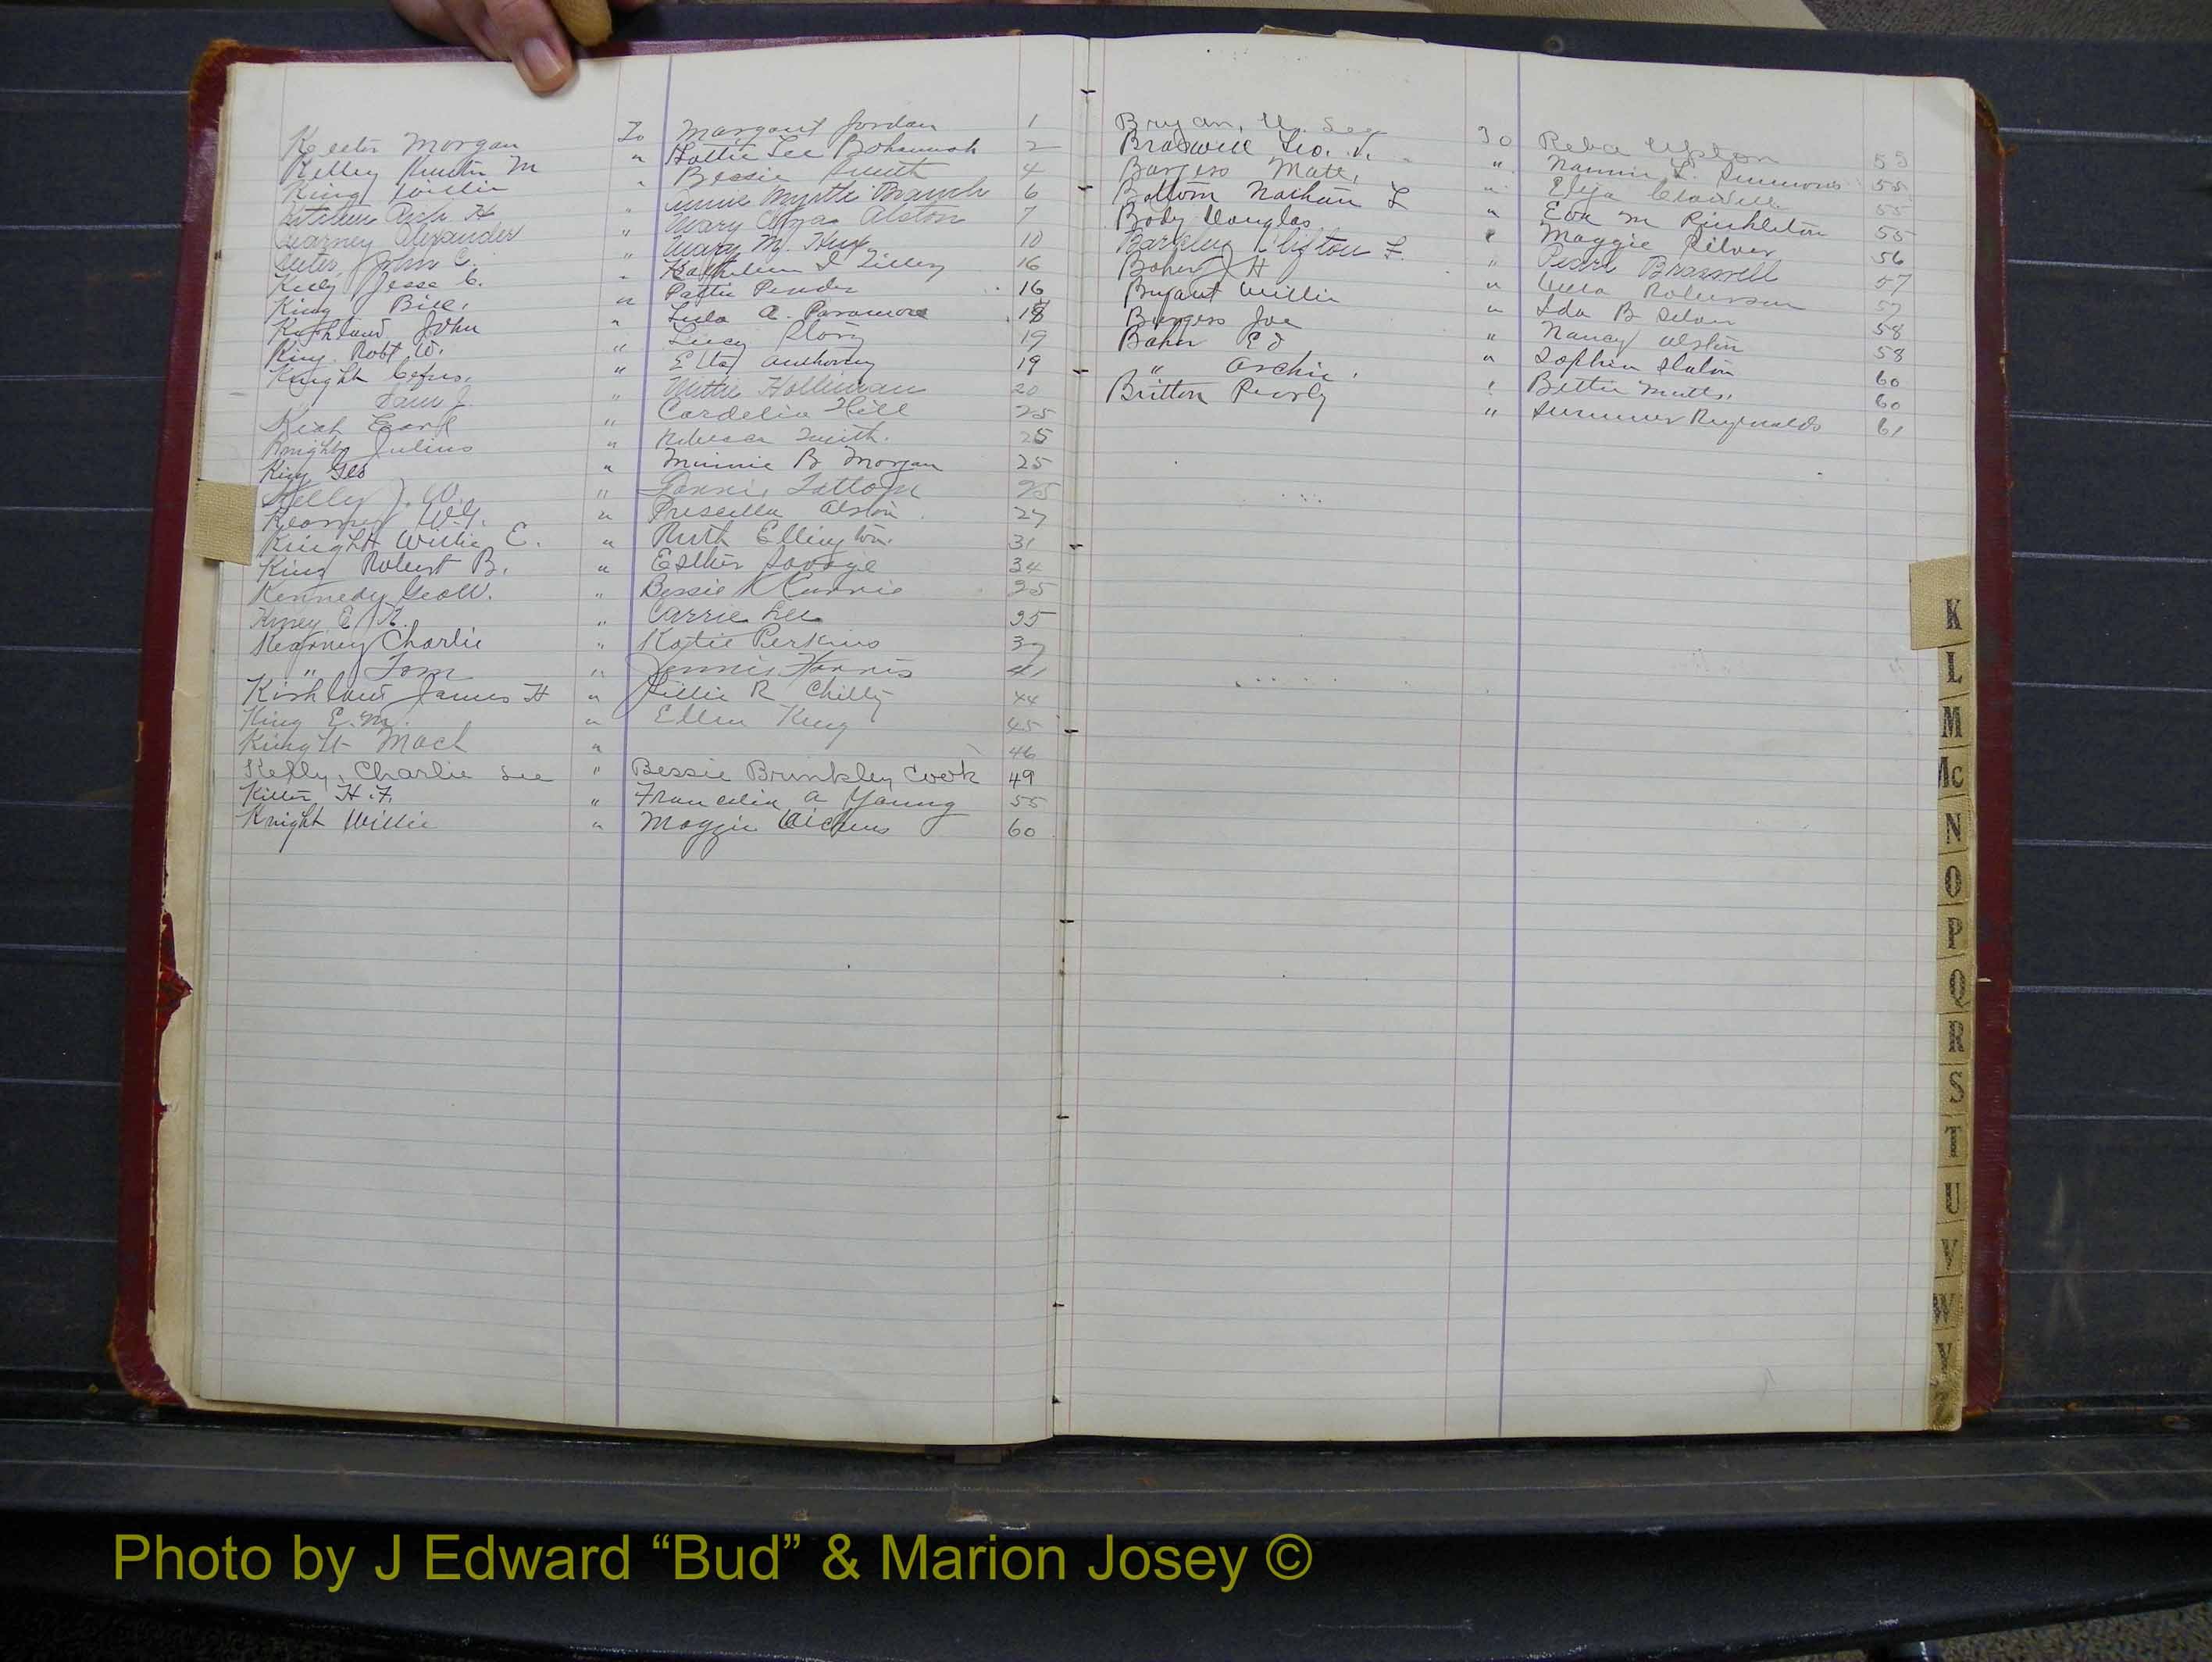 Keeter Morgan To Margaret Jordan 1
Kelley Hunter M " Hattie Lee Bohannah 2
King Willie " Bessie Smith 4
Kitchen Arch H " Annie Myrtle Branch 6
Kearney Alexander " Mary Alston 7
John C. " Mary M. 10
Kelly Jesse C. " Kathleen Lilley 16
King Bill, " Pattie Pender 16
Kirkland John " Lula A. Paramore 18
King Robt W. " Lucy Story 19
Knight " Etta Anthony 19
Sam J " Mittie Holliman 20
Earl " Cardelia Hill 25
Knight Julius " Rebecca Smith. 25
King Geo " Minnie B Morgan 25
Kelly J. W. " Fannie 25
Kearney W.G. " Priscilla Alston 27
Knight Willie C. " Ruth Ellington. 31
King Robert B. " Esther Savage 34
Kennedy Geo W. " Bessie 35
E. " Carrie Lee 35
Kearney Charlie " Katie Perkins 37
" Tom " Jennis Harris 41
Kirkland James H " Lillie R Chilly 44
King E. M. " Ellen King 45
Knight Mack " 46
Kelly, Charlie Lee " Bessie Brinkley Cook 49
H. F. " A Young 55
Knight Willie " Maggie 60
Bryan, W. Lee To Reba Upton 55
Braswell Geo. V. " Nannie L. Simmons 55
Burgess Matt, " Eliza 55
Bottom Nathan L " Eva M Pinkleton 55
Body Douglas " Maggie Silver 56
L " Pearl Braswell 57
Baker J H " Roberson 57
Bryant Willie " Ida B Silver 58
Burgess Joe " Nancy Alston 58
Baker Ed " Sophia Slaton 60
" Archie. " Bettie Mutts, 60
Britton Pearly " Summer Reynolds 61
K
L
M
Mc
N
O
P
Q
R
S
T
U
V
W
Y
Z
Photo by J Edward “Bud” & Marion Josey ©